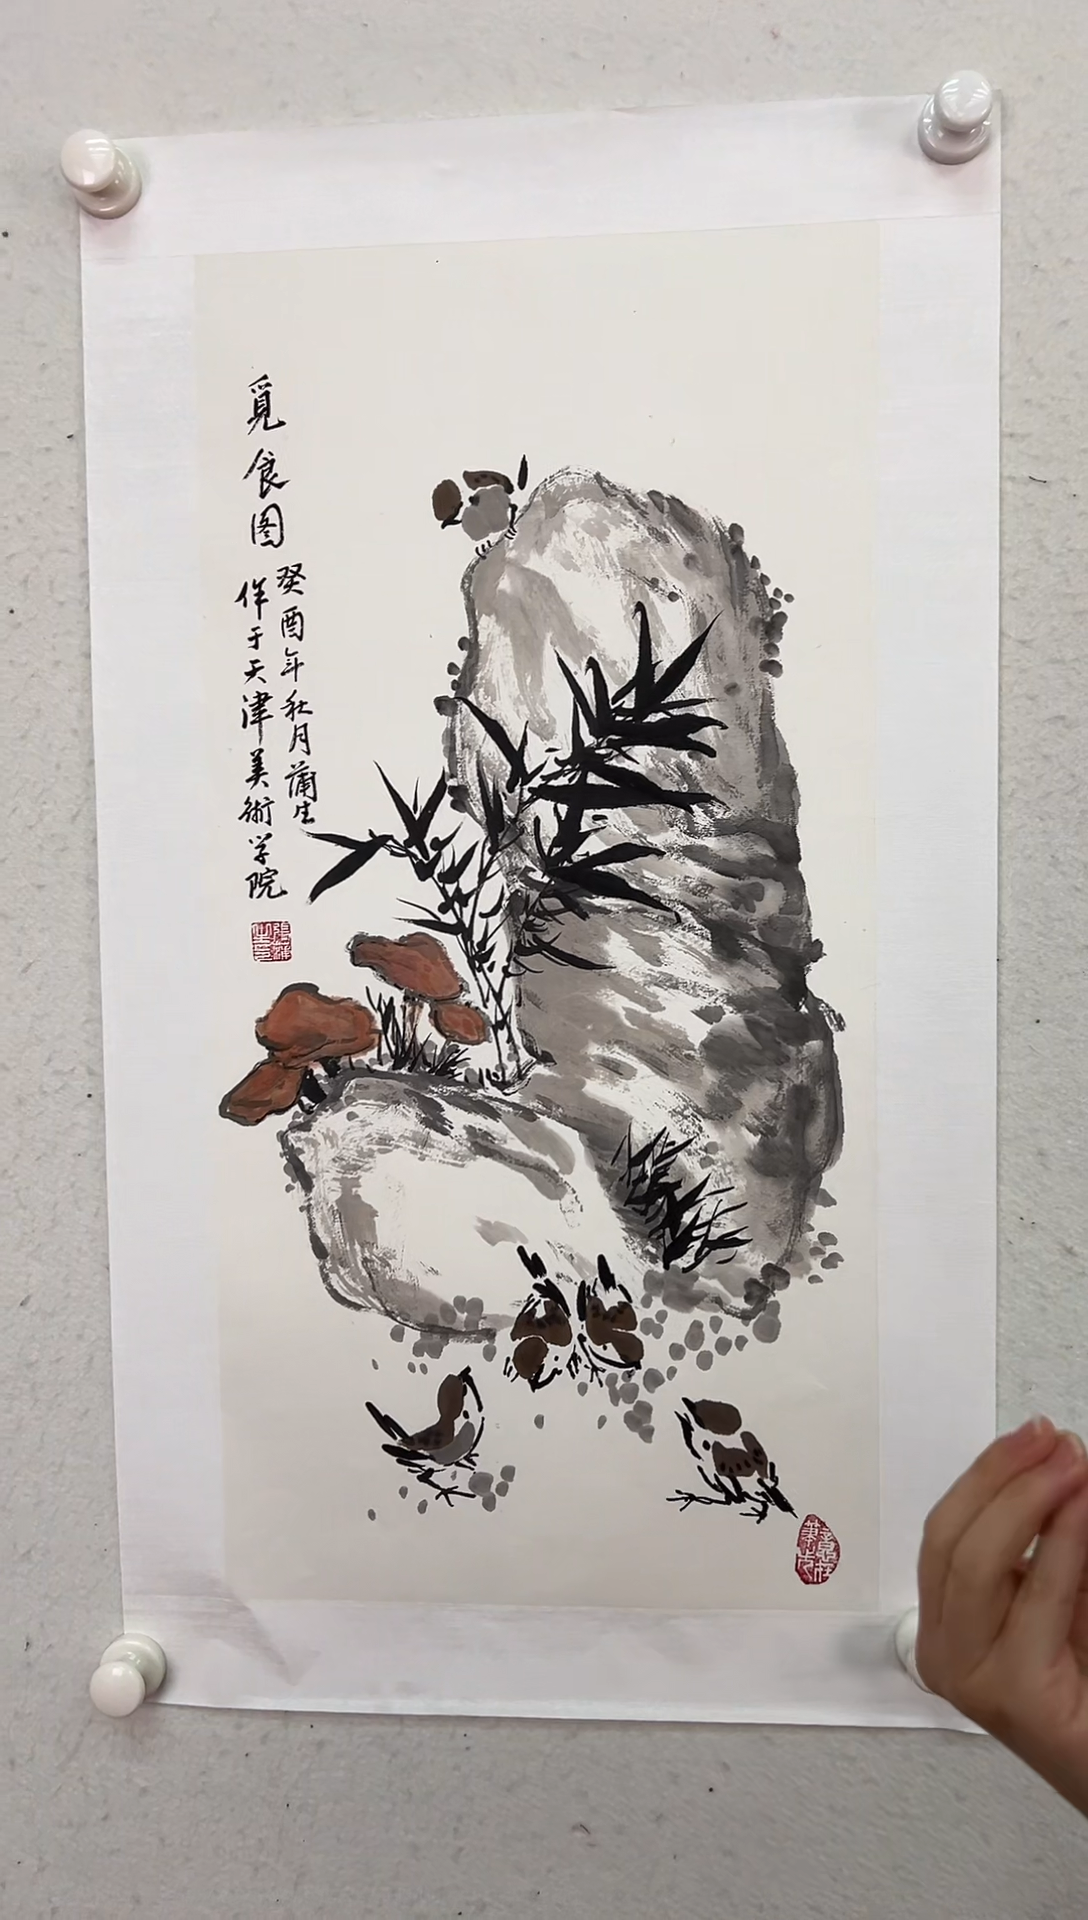 觅食图
癸酉年秋月蒲生
作于天津美術学院